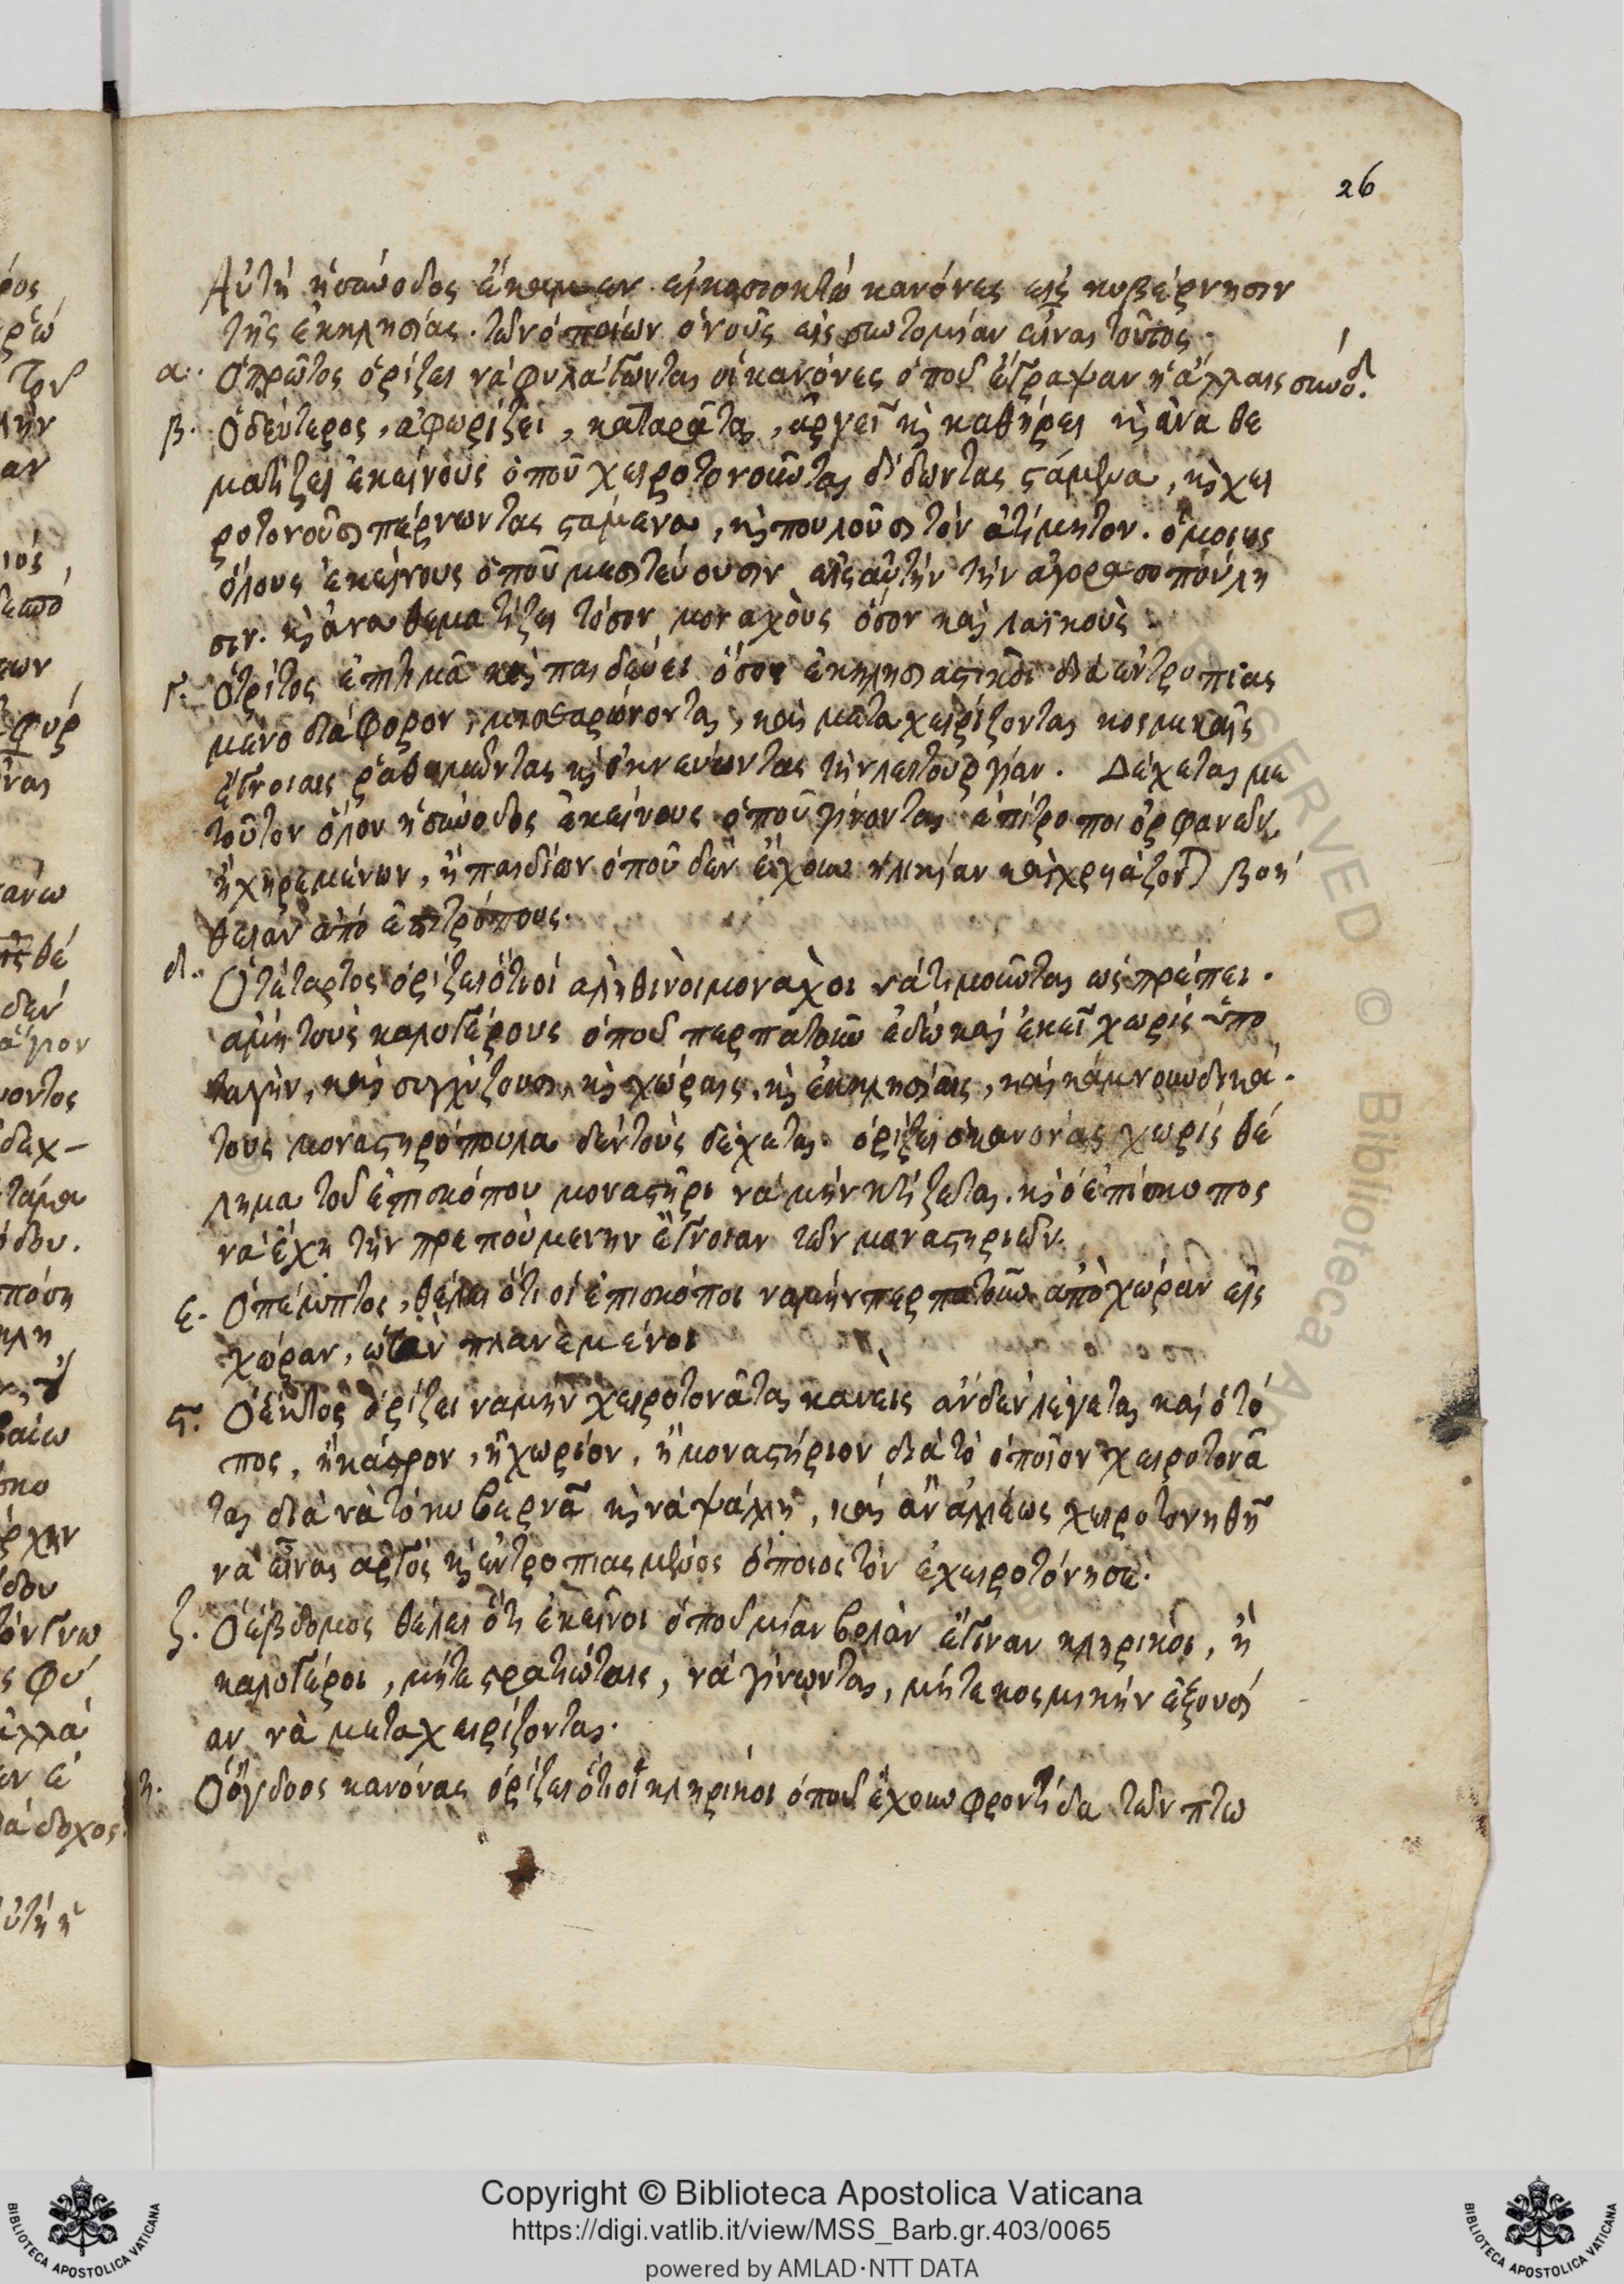 26
Αὐτὴ ἡ σύνοδος ἔκαμεν εἰκοσιοκτώ κανόνες εἰς κυβέρνησιν
τῆς ἐκκλησίας. τῶν ὁποίων ὁ νοῦς εἰς συντομίαν εἶναι τοῦτος.
α. Ὁ πρῶτος ὁρίζει νὰ φυλάγωνται οἱ κανόνες ὁποῦ ἔγραψαν ἡ ἄλλαις συνόδ.
β. Ὁ δεύτερος, ἀφωρίζει, καταρᾶται, ἀργεῖ κ̀ καθήρει κ̀ ἀναθε
ματίζει ἐκείνους ὁποῦ χειροτονοῦνται δίδωντας ϛάμενα, κ̀ χει
ροτονοῦσι πέρνωντας ϛάμενα, κ̀ πουλοῦσι τὸν ἀτίμητον. ὁμοίως
ὅλους ἐκείνους ὁποῦ μεσιτεύουσιν εἰς αὐτὴν τὴν ἀγορασοπούλη
σιν. κ̀ ἀναθεματίζει τόσον μοναχοὺς ὅσον καὶ λαϊκοὺς.
γ. Ὁ τρίτος ἐπιτιμᾶ καὶ παιδεύει ὅσοι ἐκκλησιαϛικοὶ διὰ ἐντροπιας
μένο διάφορον, μισθαρώνονται, καὶ μεταχειρίζονται κοσμικαῖς
ἔγνοιαις ῥαθυμῶντας κ̀ ὀκνεύωντας τὴν λειτουργίαν. Δέχεται με
τοῦτον ὅλον ἡ σύνοδος ἐκείνους ὁποῦ γίνονται ἐπίτροποι ὀρφανῶν,
ἢ χηρεμένων, ἢ παιδίων ὁποῦ δὲν ἔχουν ἡλικίαν καὶ χρειάζονται βοή
θειαν ἀπὸ ἐπιτρόπους.
δ. Ὁ τέταρτος ὁρίζει ὅτι οἱ ἀληθινοὶ μοναχοὶ νὰ τιμοῦνται ὡς πρέπει.
ἀμὴ τοὺς καλογέρους ὁποῦ περπατοῦν ἐδῶ καὶ ἐκεῖ χωρὶς ὑπο
ταγὴν, καὶ συγχύζουσι κ̀ χώραις, κ̀ ἐκκλησίαις, καὶ κάμνουν δικά
τους μοναϛηρόπουλα δὲν τοὺς δέχεται. ὁρίζει ὁ κανόνας χωρὶς θέ
λημα τοῦ ἐπισκόπου μοναϛῆρι νὰ μὴν κτίζεται. κ̀ ὁ ἐπίσκοπος
νὰ ἔχῃ τὴν πρεπούμενην ἔγνοιαν τῶν μοναϛηριῶν.
ε. Ὁ πέμπτος, θέλει ὅτι οἱ ἐπισκόποι να μὴν περπατοῦν ἀπὸ χώραν εἰς
χώραν, ὡσὰν πλανεμένοι
ϛ. Ὁ ἕκτος ὁρίζει να μὴν χειροτονᾶται κανεὶς ἂν δὲν λέγεται καὶ ὁ τό
πος, ἢ κάϛρον, ἢ χωρίον, ἢ μοναϛήριον διὰ τὸ ὁποῖον χειροτονᾶ
ται διὰ νὰ τὸ κυβερνᾶ κ̀ νὰ ψάλῃ, καὶ ἂν ἀλλέως χειροτονηθῆ
νὰ εἶναι ἀργὸς κ̀ ἐντροπιασμένος ὁποιος τὸν ἐχειροτόνησε.
ζ. Ὁ ἕβδομος θέλει ὅτι ἐκεῖνοι ὁποῦ μίαν βολὰν ἔγιναν κληρικοὶ, ἢ
καλογέροι, μήτε ϛρατιώταις, νὰ γίνωνται, μήτε κοσμικὴν ἐξουσί
αν νὰ μεταχειρίζονται.
η. Ὁ ὄγδοος κανόνας ὁρίζει ὅτι οἱ κληρικοι ὁποῦ ἔχουν φροντίδα τῶν πτω
Copyright © Biblioteca Apostolica Vaticana
https://digi.vatlib.it/view/MSS_Barb.gr.403/0065
powered by AMLAD·NTT DATA
BIBLIOTECA APOSTOLICA VATICANA
BIBLIOTECA APOSTOLICA VATICANA